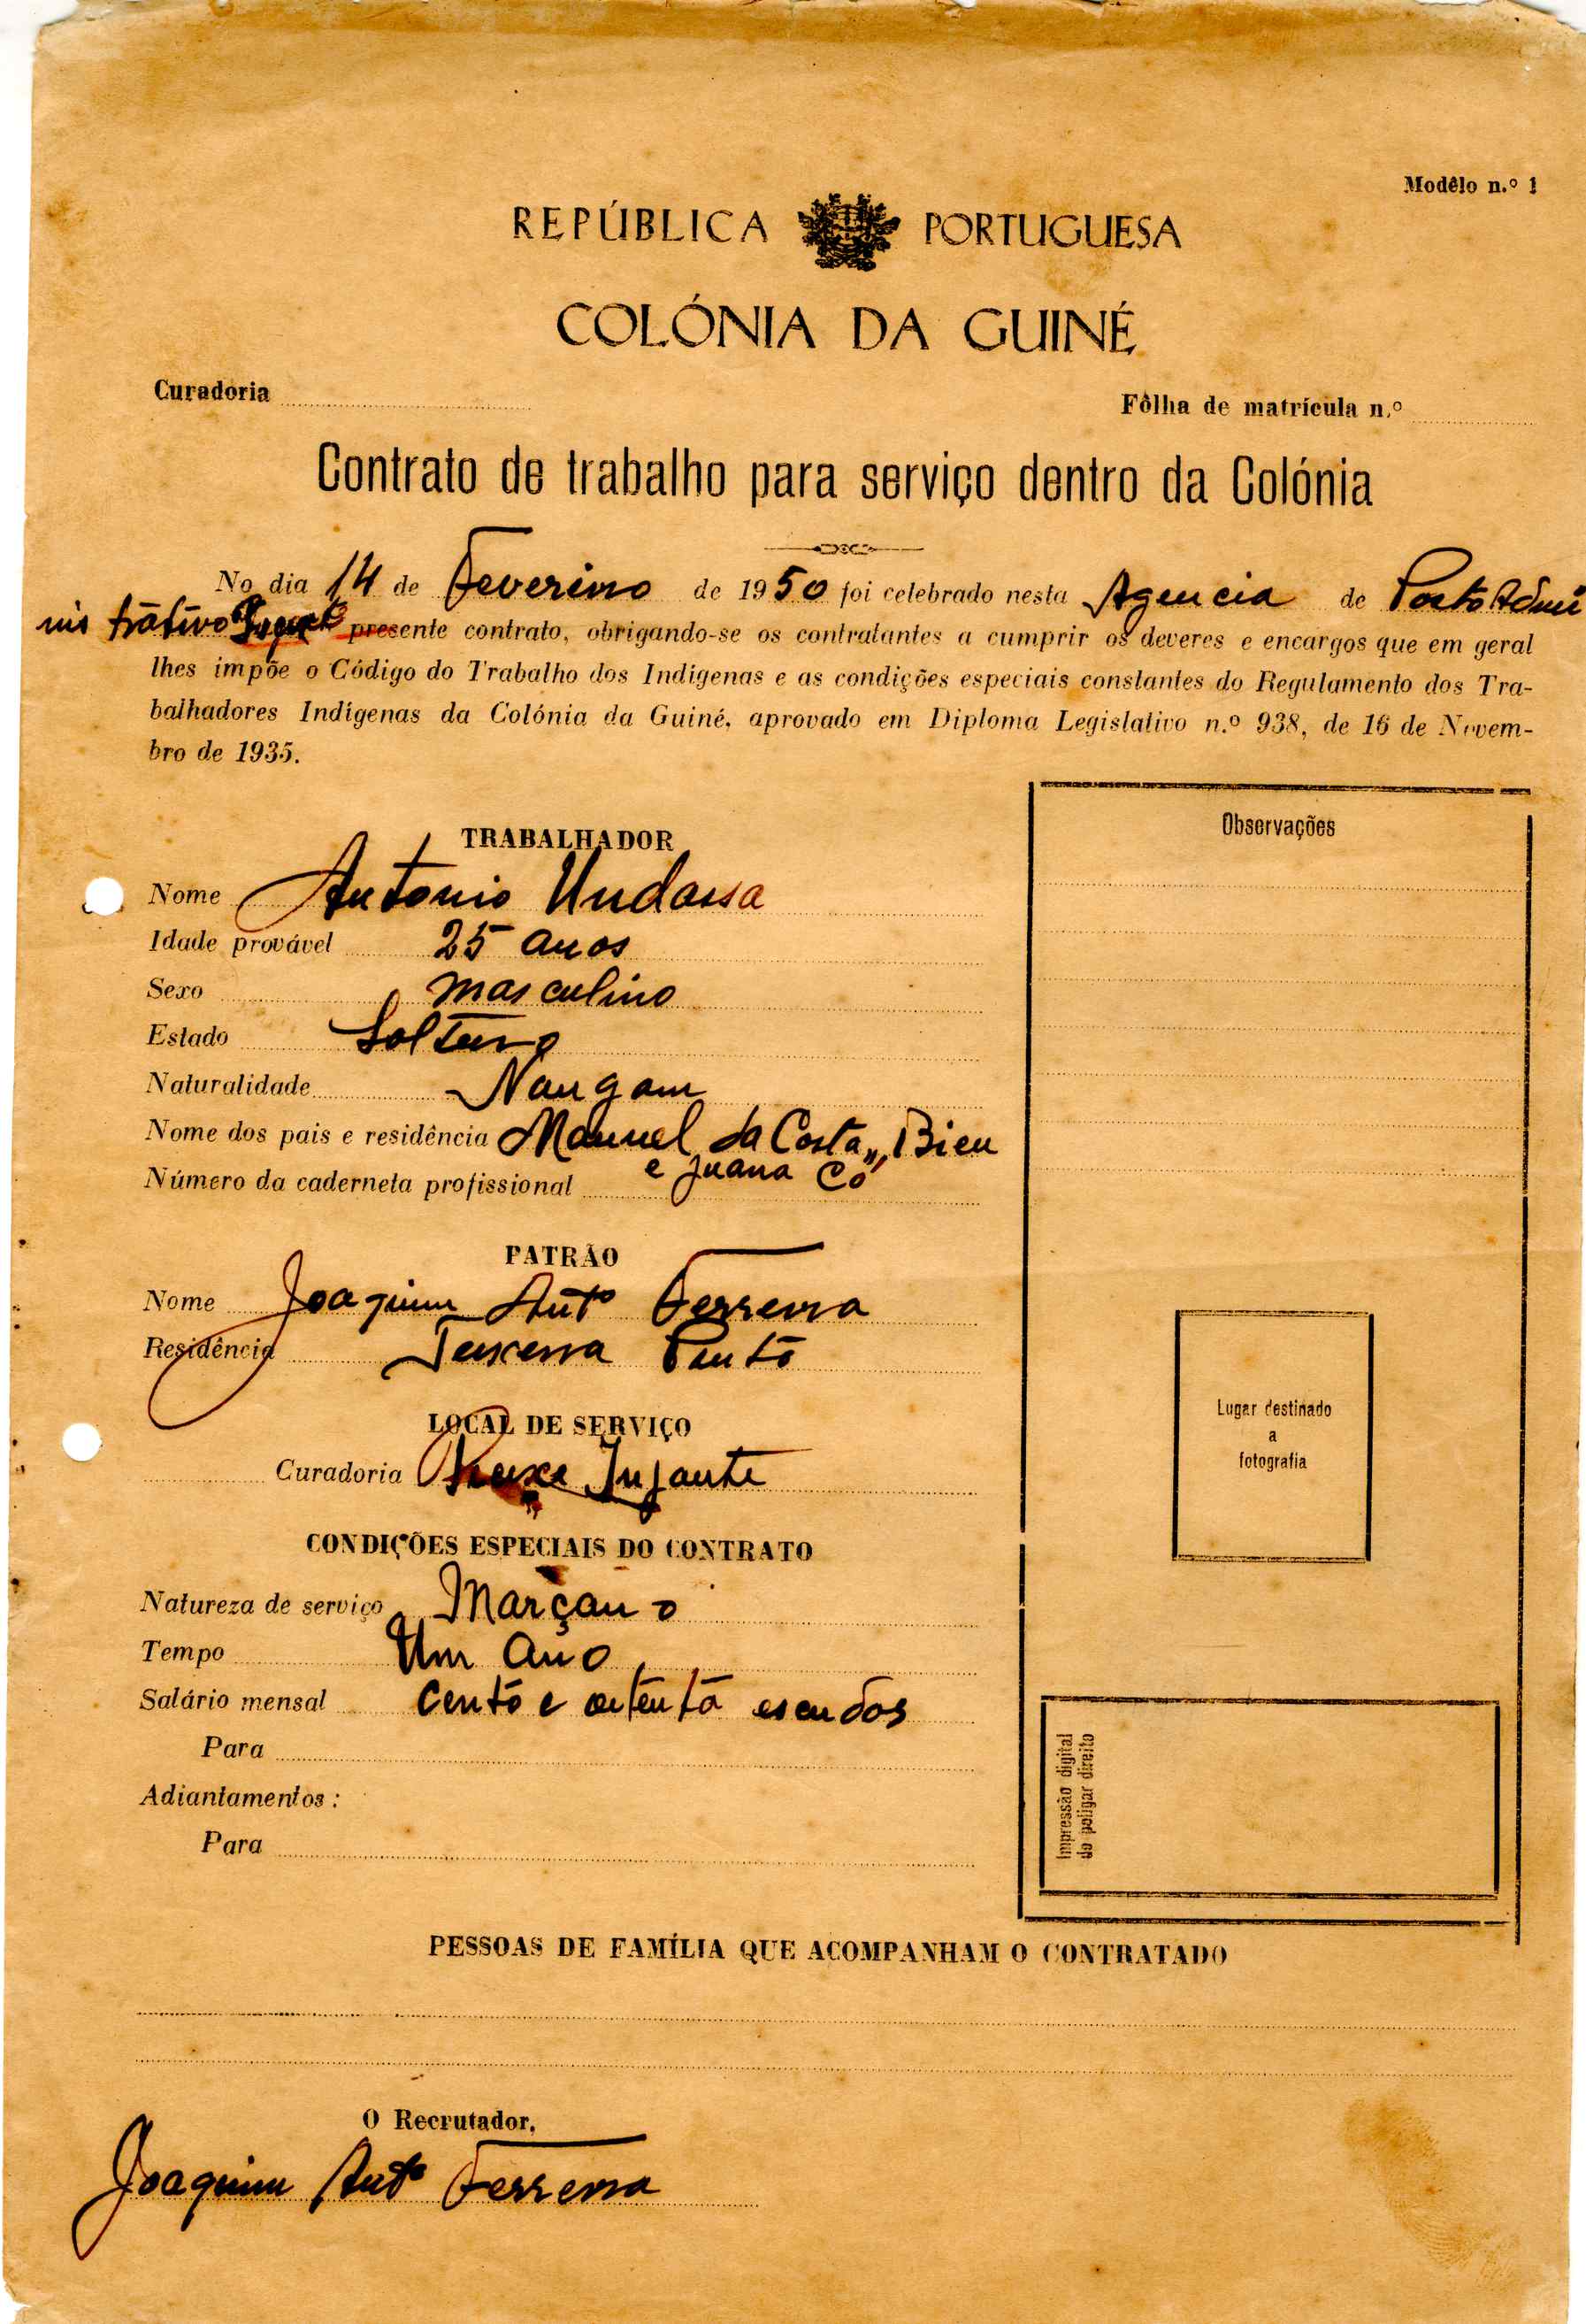 Modêlo n.º 1
REPÚBLICA PORTUGUESA
COLÓNIA DA GUINÉ
Curadoria
Fôlha de matrícula n.º
Contrato de trabalho para serviço dentro da Colónia
No dia 14 de Fevereiro de 1950 foi celebrado nesta Agencia de Posto Admi
nistrativo presente contrato, obrigando-se os contratantes a cumprir os deveres e encargos que em geral
lhes impõe o Código do Trabalho dos Indígenas e as condições especiais constantes do Regulamento dos Tra-
balhadores Indígenas da Colónia da Guiné, aprovado em Diploma Legislativo n.º 938, de 16 de Novem-
bro de 1935.
Observações
TRABALHADOR
Nome Antonio Undassa
Idade provável 25 anos
Sexo masculino
Estado Solteiro
Naturalidade Nangam
Nome dos pais e residência Manuel da Costa,, Bieu
e Juana Có
Número da caderneta profissional
PATRÃO
Nome Joaquim Antº Ferreira
Residência Teixeira Pinto
Lugar destinado
a
fotografia
LOCAL DE SERVIÇO
Curadoria Infante
CONDIÇÕES ESPECIAIS DO CONTRATO
Natureza de serviço Marçano
Tempo Um ano
Salário mensal Cento e oitenta escudos
Para
Adiantamentos :
Para
Impressão digital
do poligar direito
PESSOAS DE FAMÍLIA QUE ACOMPANHAM O CONTRATADO
O Recrutador,
Joaquim Antº Ferreira